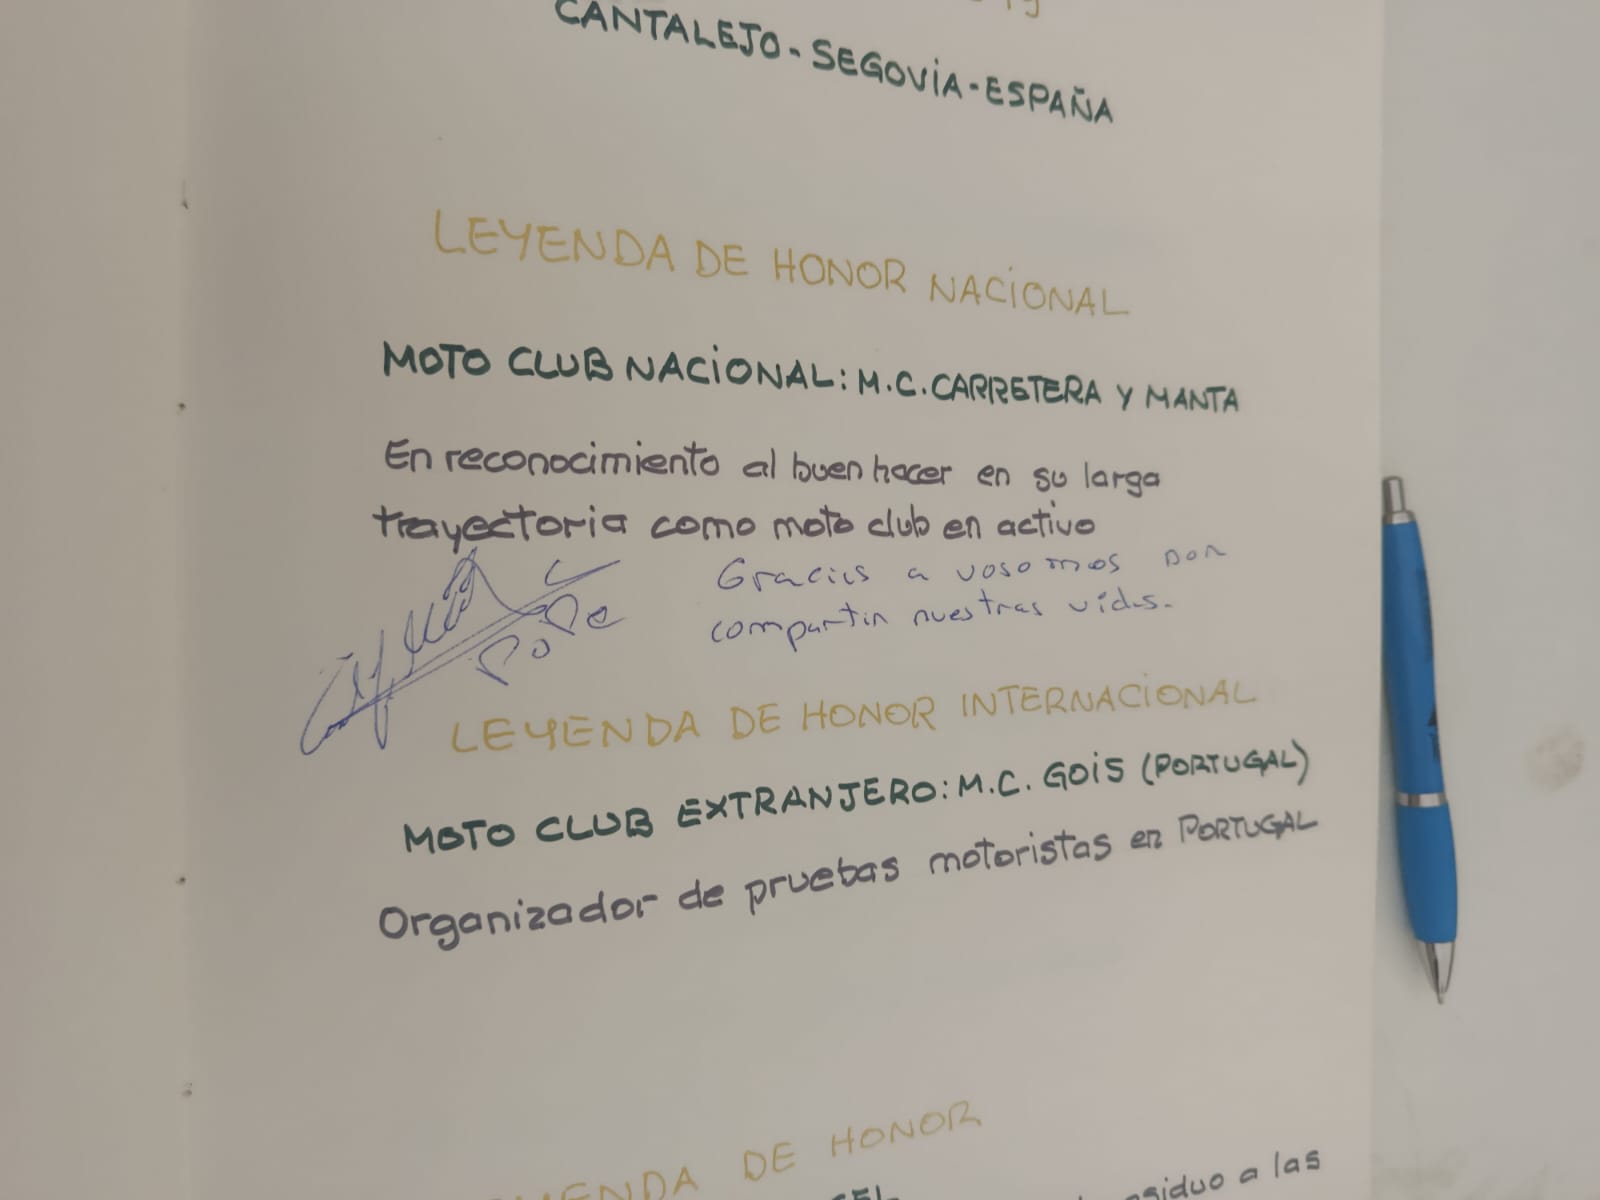 CANTALEJO - SEGOVIA - ESPAÑA
LEYENDA DE HONOR NACIONAL
MOTO CLUB NACIONAL: M.C. CARRETERA Y MANTA
En reconocimiento al buen hacer en su larga
trayectoria como moto club en activo
Gracias a vosotros por
compartir nuestras vidas.
Pope
LEYENDA DE HONOR INTERNACIONAL
MOTO CLUB EXTRANJERO: M.C. GOIS (PORTUGAL)
Organizador de pruebas motoristas en PORTUGAL
LEYENDA DE HONOR
a las